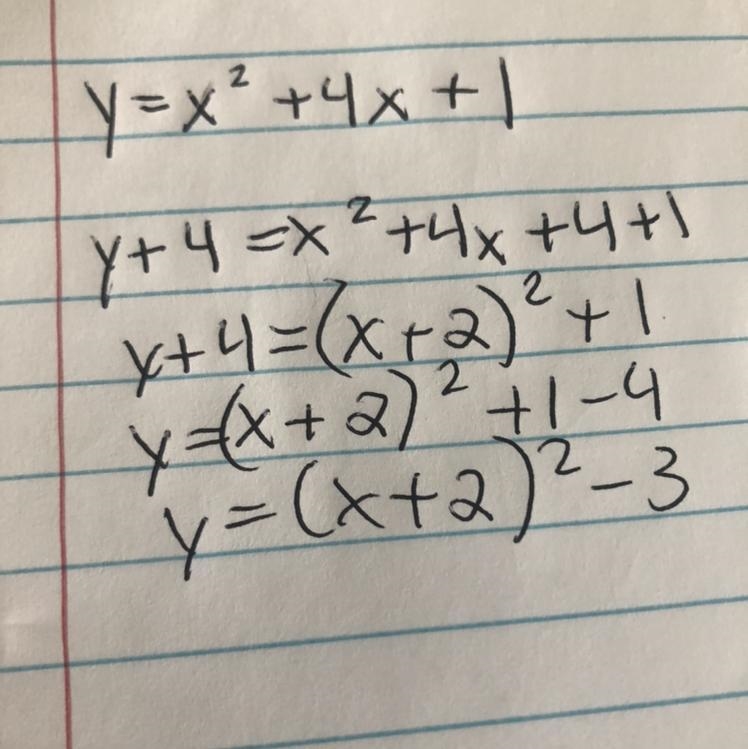 y=x² +4x +1
y+4 =x²+4x+4+1
y+4=(x+2)²+1
y=(x+2)² +1-4
y=(x+2)²-3